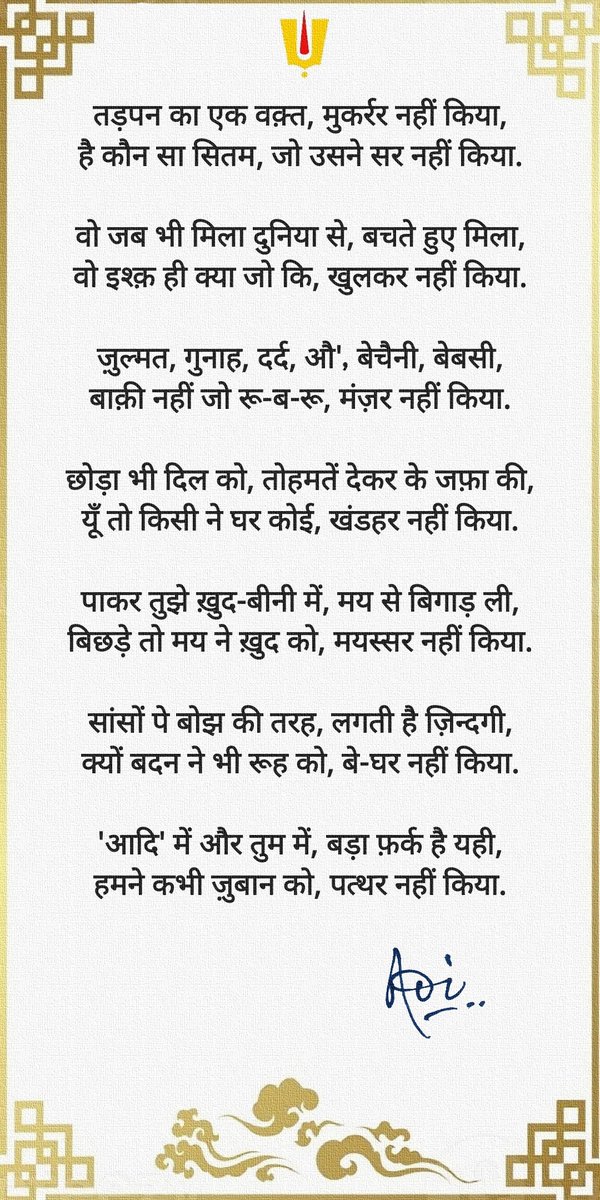 तड़पन का एक वक़्त, मुकर्रर नहीं किया,
है कौन सा सितम, जो उसने सर नहीं किया.
वो जब भी मिला दुनिया से, बचते हुए मिला,
वो इश्क़ ही क्या जो कि, खुलकर नहीं किया.
ज़ुल्मत, गुनाह, दर्द, औ', बेचैनी, बेबसी,
बाक़ी नहीं जो रू-ब-रू, मंज़र नहीं किया.
छोड़ा भी दिल को, तोहमतें देकर के जफ़ा की,
यूँ तो किसी ने घर कोई, खंडहर नहीं किया.
पाकर तुझे ख़ुद-बीनी में, मय से बिगाड़ ली,
बिछड़े तो मय ने ख़ुद को, मयस्सर नहीं किया.
सांसों पे बोझ की तरह, लगती है ज़िन्दगी,
क्यों बदन ने भी रूह को, बे-घर नहीं किया.
'आदि' में और तुम में, बड़ा फ़र्क है यही,
हमने कभी ज़ुबान को, पत्थर नहीं किया.
Adi..